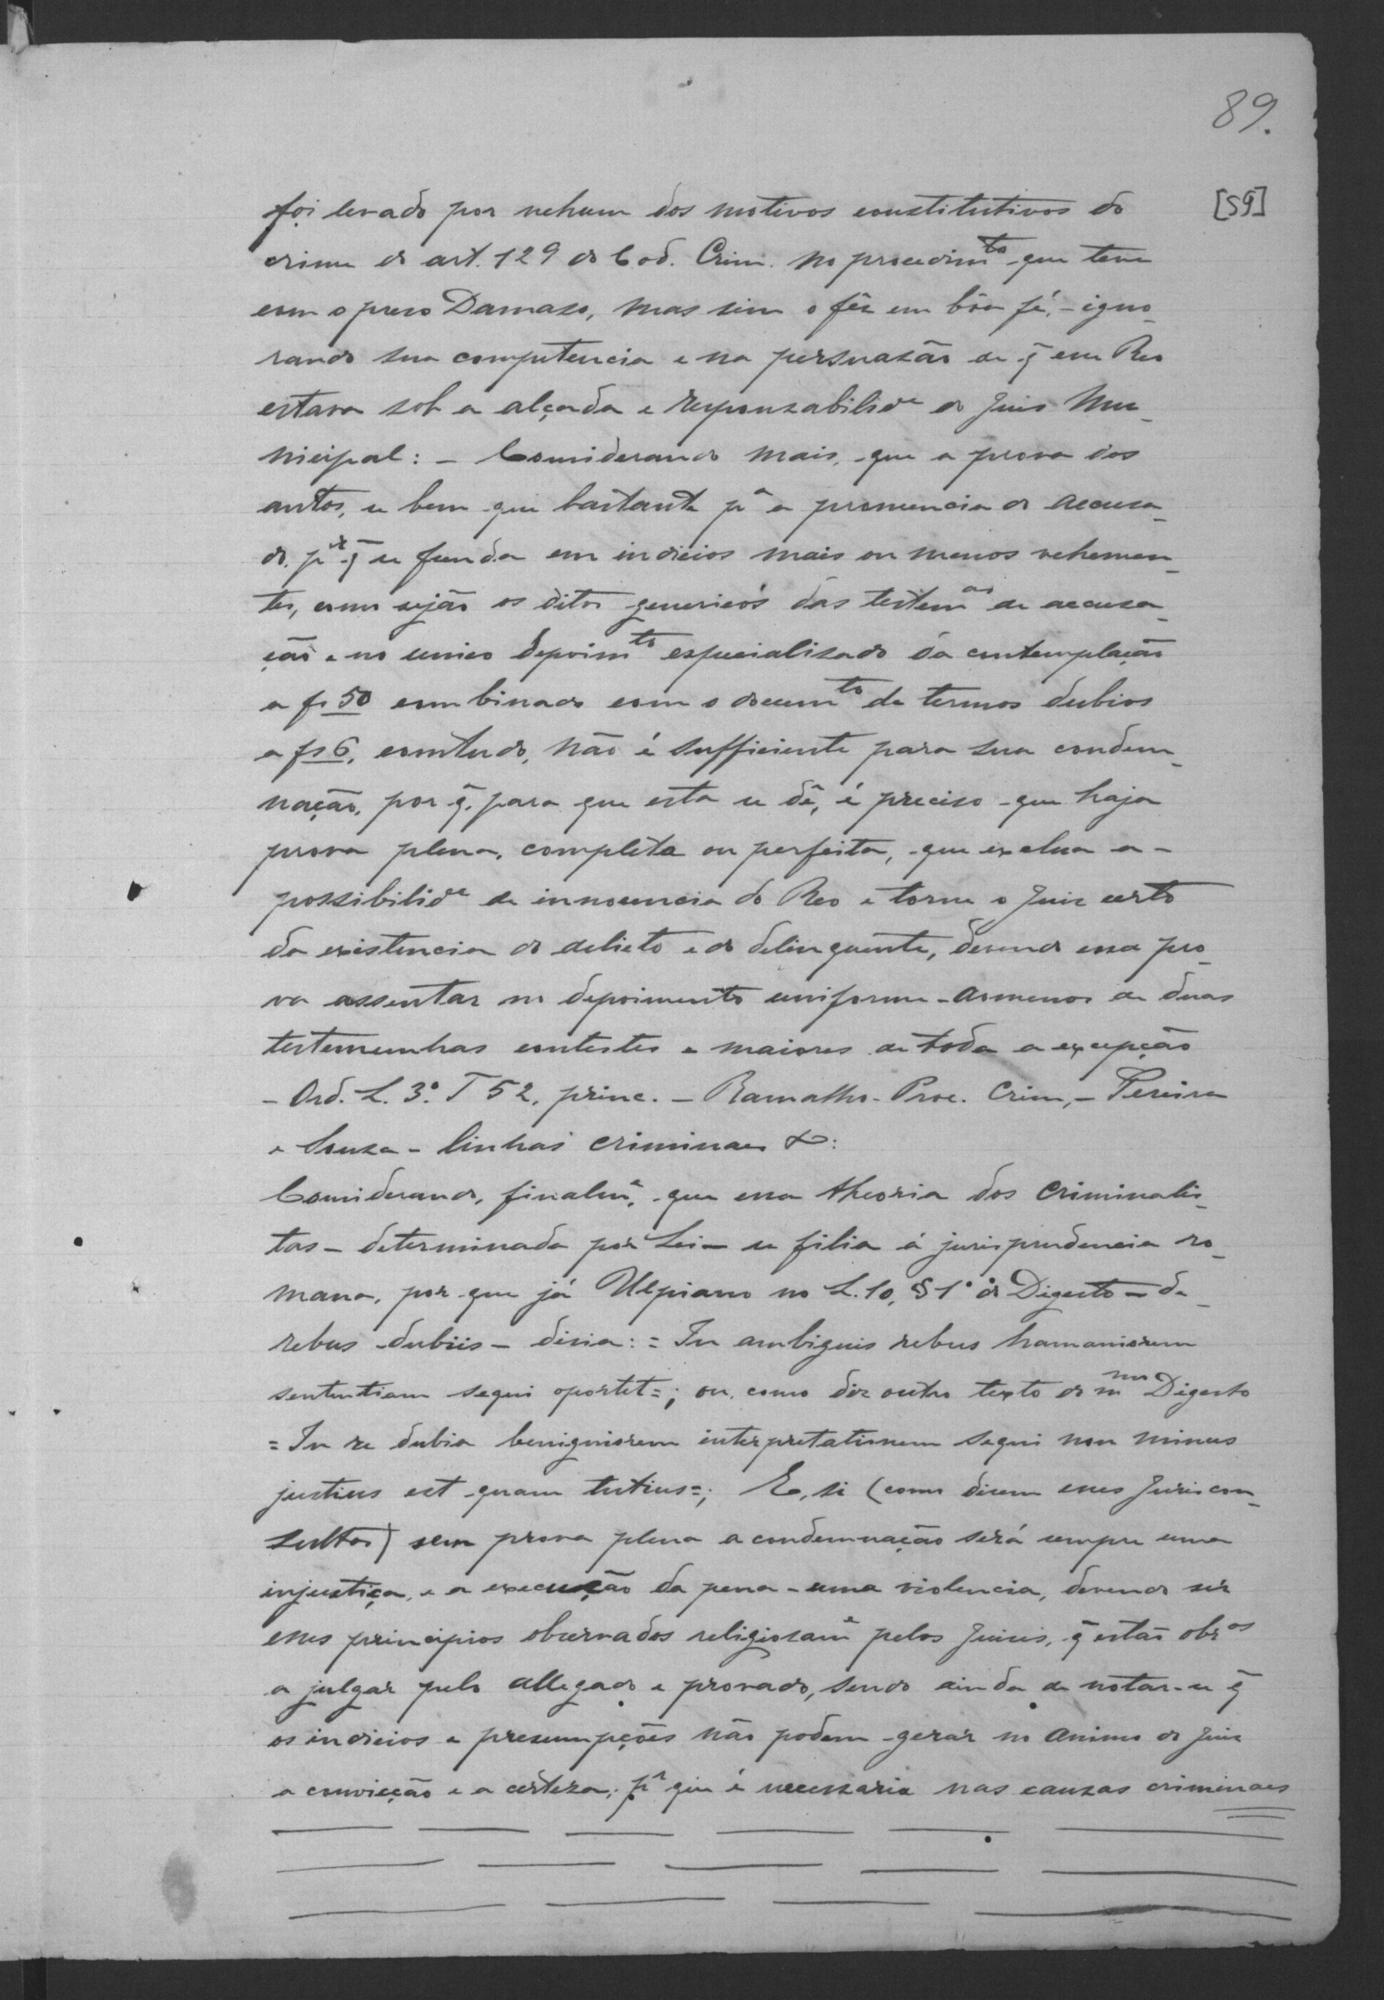 89.
[59]
foi levado por nehum dos motivos constitutivos do
crime do art. 129 do Cod. Crim. no procedimto que teve
com o preso Damazo, mas sim o fês em bôa fé, - igno-
rando sua competencia e na persuazão de q̃ esse Reo
estava sob a alçada e responzabilide do Juis Mu-
nicipal: - Considerando mais, que a prova dos
autos, se bem que bastante pa a pronuncia do accusa-
do, pr q̃ se funda em indicios mais ou menos vehemen-
tes, como sejão os ditos genericos das testemas de accusa-
ção e no unico depoimto especializado da contemplação
a fs 50 combinado com o documto de termos dubios
a fs 6, comtudo, não é sufficiente para sua condem-
nação, por q̃, para que esta se dê, é preciso que haja
prova plena, completa ou perfeita, que exclua a -
possibilide de innocencia do Reo e torne o Juiz certo
da existencia do delicto e do delinquente, devendo essa pro-
va assentar no depoimento uniforme - aomenos de duas
testemunhas contestes e maiores de toda a excepção
- Ord. L. 3.º T 52, princ. - Ramalho - Proc. Crim, - Pereira
e Souza - linhas criminaes &:
Considerando, finalme, que essa theoria dos criminalis-
tas - determinada por Lei - se filia á jurisprudencia ro-
mana, por que já Ulpiano no L. 10, § 1º do Digesto - de
rebus dubiis - disia: = In ambiguis rebus humaniorem
sententiam sequi oportet =; ou, como diz outro texto do mmo Digesto
= In re dubia benigniorem interpretationem sequi non minus
justius est quam tutius =; E, si (como dizem esses Juriscon-
sultos) sem prova plena a condemnação será sempre uma
injustiça, e a execução da pena - uma violencia, devendo ser
esses principios observados religiozame pelos Juises, q̃ estão obros
a julgar pelo allegado e provado, sendo ainda de notar-se q̃
os indicios e presumpções não podem gerar no animo do Juiz
a convicção e a certeza, pa que é necessaria nas cauzas criminaes